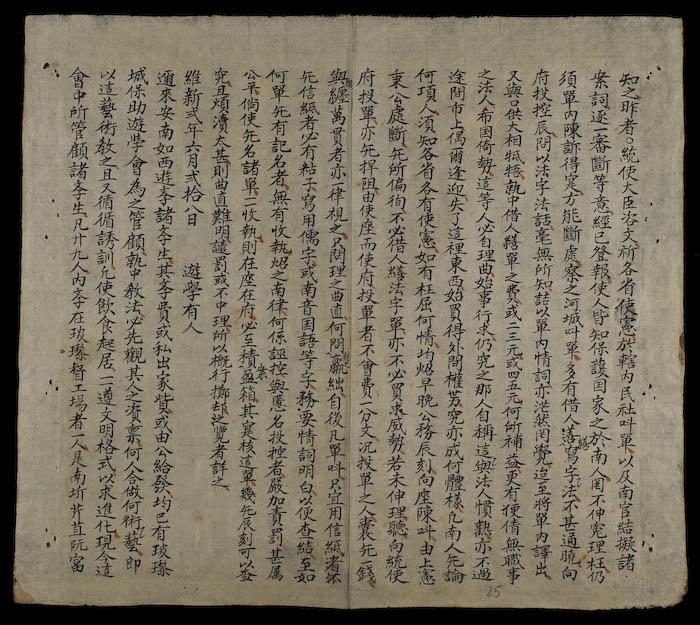 知之昨者○統使大臣咨文所各省使憲於轄內民社叫單以及南官結擬諸
案詞逐一審斷等意經已登報使人皆知保護国家之於南人罔不伸冤理枉仍
須單內陳訴得寔方能斷處察之河城叫單多有借人善寫字法不甚通曉向
府投控辰問以法字法話毫無所知詰以單內情詞亦茫然罔覺迨至將單內譯出
又與口供大相牴牾執中借人繕單之費或二三元或四五元何所補益更有㨿倩無職事
之法人布国倚勢這等人必自理曲始事行求仍究之那人自稱這與法人慣熟亦不過
途間市上偶爾逢迎失了這裡東西始買得外間權勞究亦成何體樣凡南人死論
何項人須知各省各有使憲如有枉屈何情均炤早晚公務辰刻向座陳叫由上憲
秉公處斷死所偏徇不必借人繕法字單亦不必買求威勢若未伸理聽向統使
府投單亦死捍阻由使座而使府投單者不曾費一分文况投單之人囊死一錢
與纏萬貫者亦一律視之只問理之曲直何問贏絀自後凡單叫只宜用信紙者还
死信紙者必有粘子寫用儒字或南音国語等字務要情詞明白以便查結至如
何單死有記名者無有收執炤之南律何係誣控與匿名投控者嚴加責罰甚属
公平倘使死名諸單一一收執則在座在府必至積盈箱其寔核這單幾死辰刻可以查
究且煩瀆太甚則曲直難明譴罰或不中理所以概行擲却之覽者詳之
維新弍年六月弍拾八日 遊學有人
邇來安南如西遊李諸李生其李費或私出家貲或由公給發均已有玻瓈
城保助遊學會為之管顧執中教法必先觀其人之資稟何人合做何術藝即
以這藝術教之且又循循誘訓凡使飲食起居一一遵文明格式以求進化現今這
會中所管顧諸李生凡廿九人內李在玻瓈督工場者一人是南圻片苴阮富
25